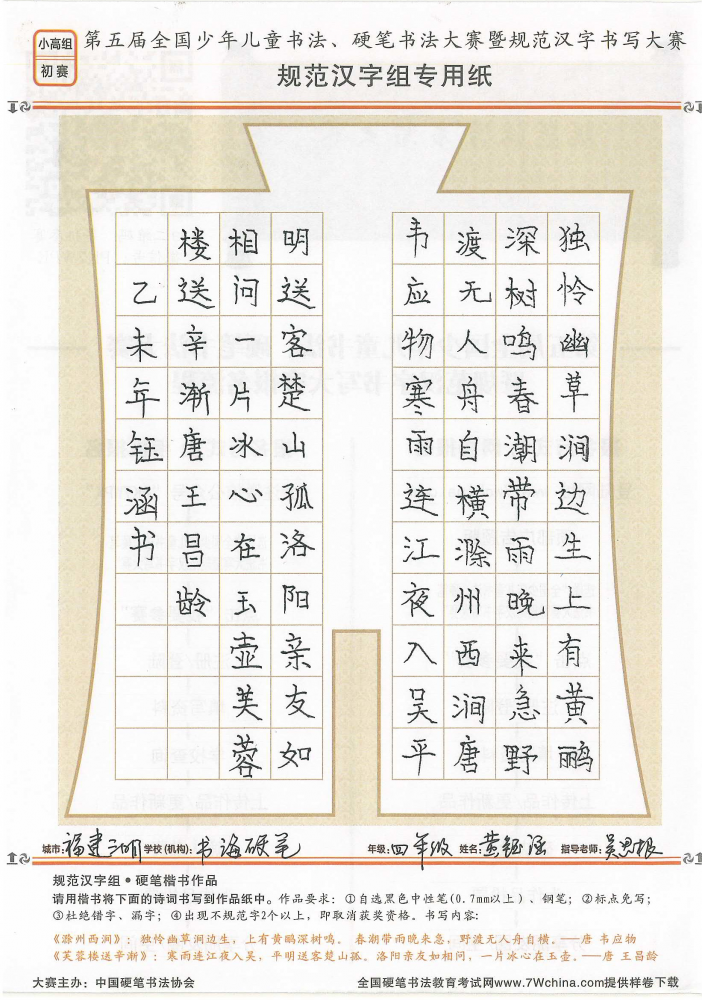 小高组
初赛
第五届全国少年儿童书法、硬笔书法大赛暨规范汉字书写大赛
规范汉字组专用纸
独怜幽草涧边生上有黄鹂
深树鸣春潮带雨晚来急野
渡无人舟自横滁州西涧唐
韦应物寒雨连江夜入吴平
明送客楚山孤洛阳亲友如
相问一片冰心在玉壶芙蓉
楼送辛渐唐王昌龄
乙未年钰涵书
城市:福建三明 学校(机构):书海硬笔 年级:四年级 姓名:黄钰涵 指导老师:吴思根
规范汉字组•硬笔楷书作品
请用楷书将下面的诗词书写到作品纸中。作品要求：①自选黑色中性笔(0.7mm以上)、钢笔；②标点免写；
③杜绝错字、漏字；④出现不规范字2个以上，即取消获奖资格。书写内容：
《滁州西涧》：独怜幽草涧边生，上有黄鹂深树鸣。春潮带雨晚来急，野渡无人舟自横。——唐 韦应物
《芙蓉楼送辛渐》：寒雨连江夜入吴，平明送客楚山孤。洛阳亲友如相问，一片冰心在玉壶。——唐 王昌龄
大赛主办：中国硬笔书法协会 全国硬笔书法教育考试网www.7Wchina.com提供样卷下载